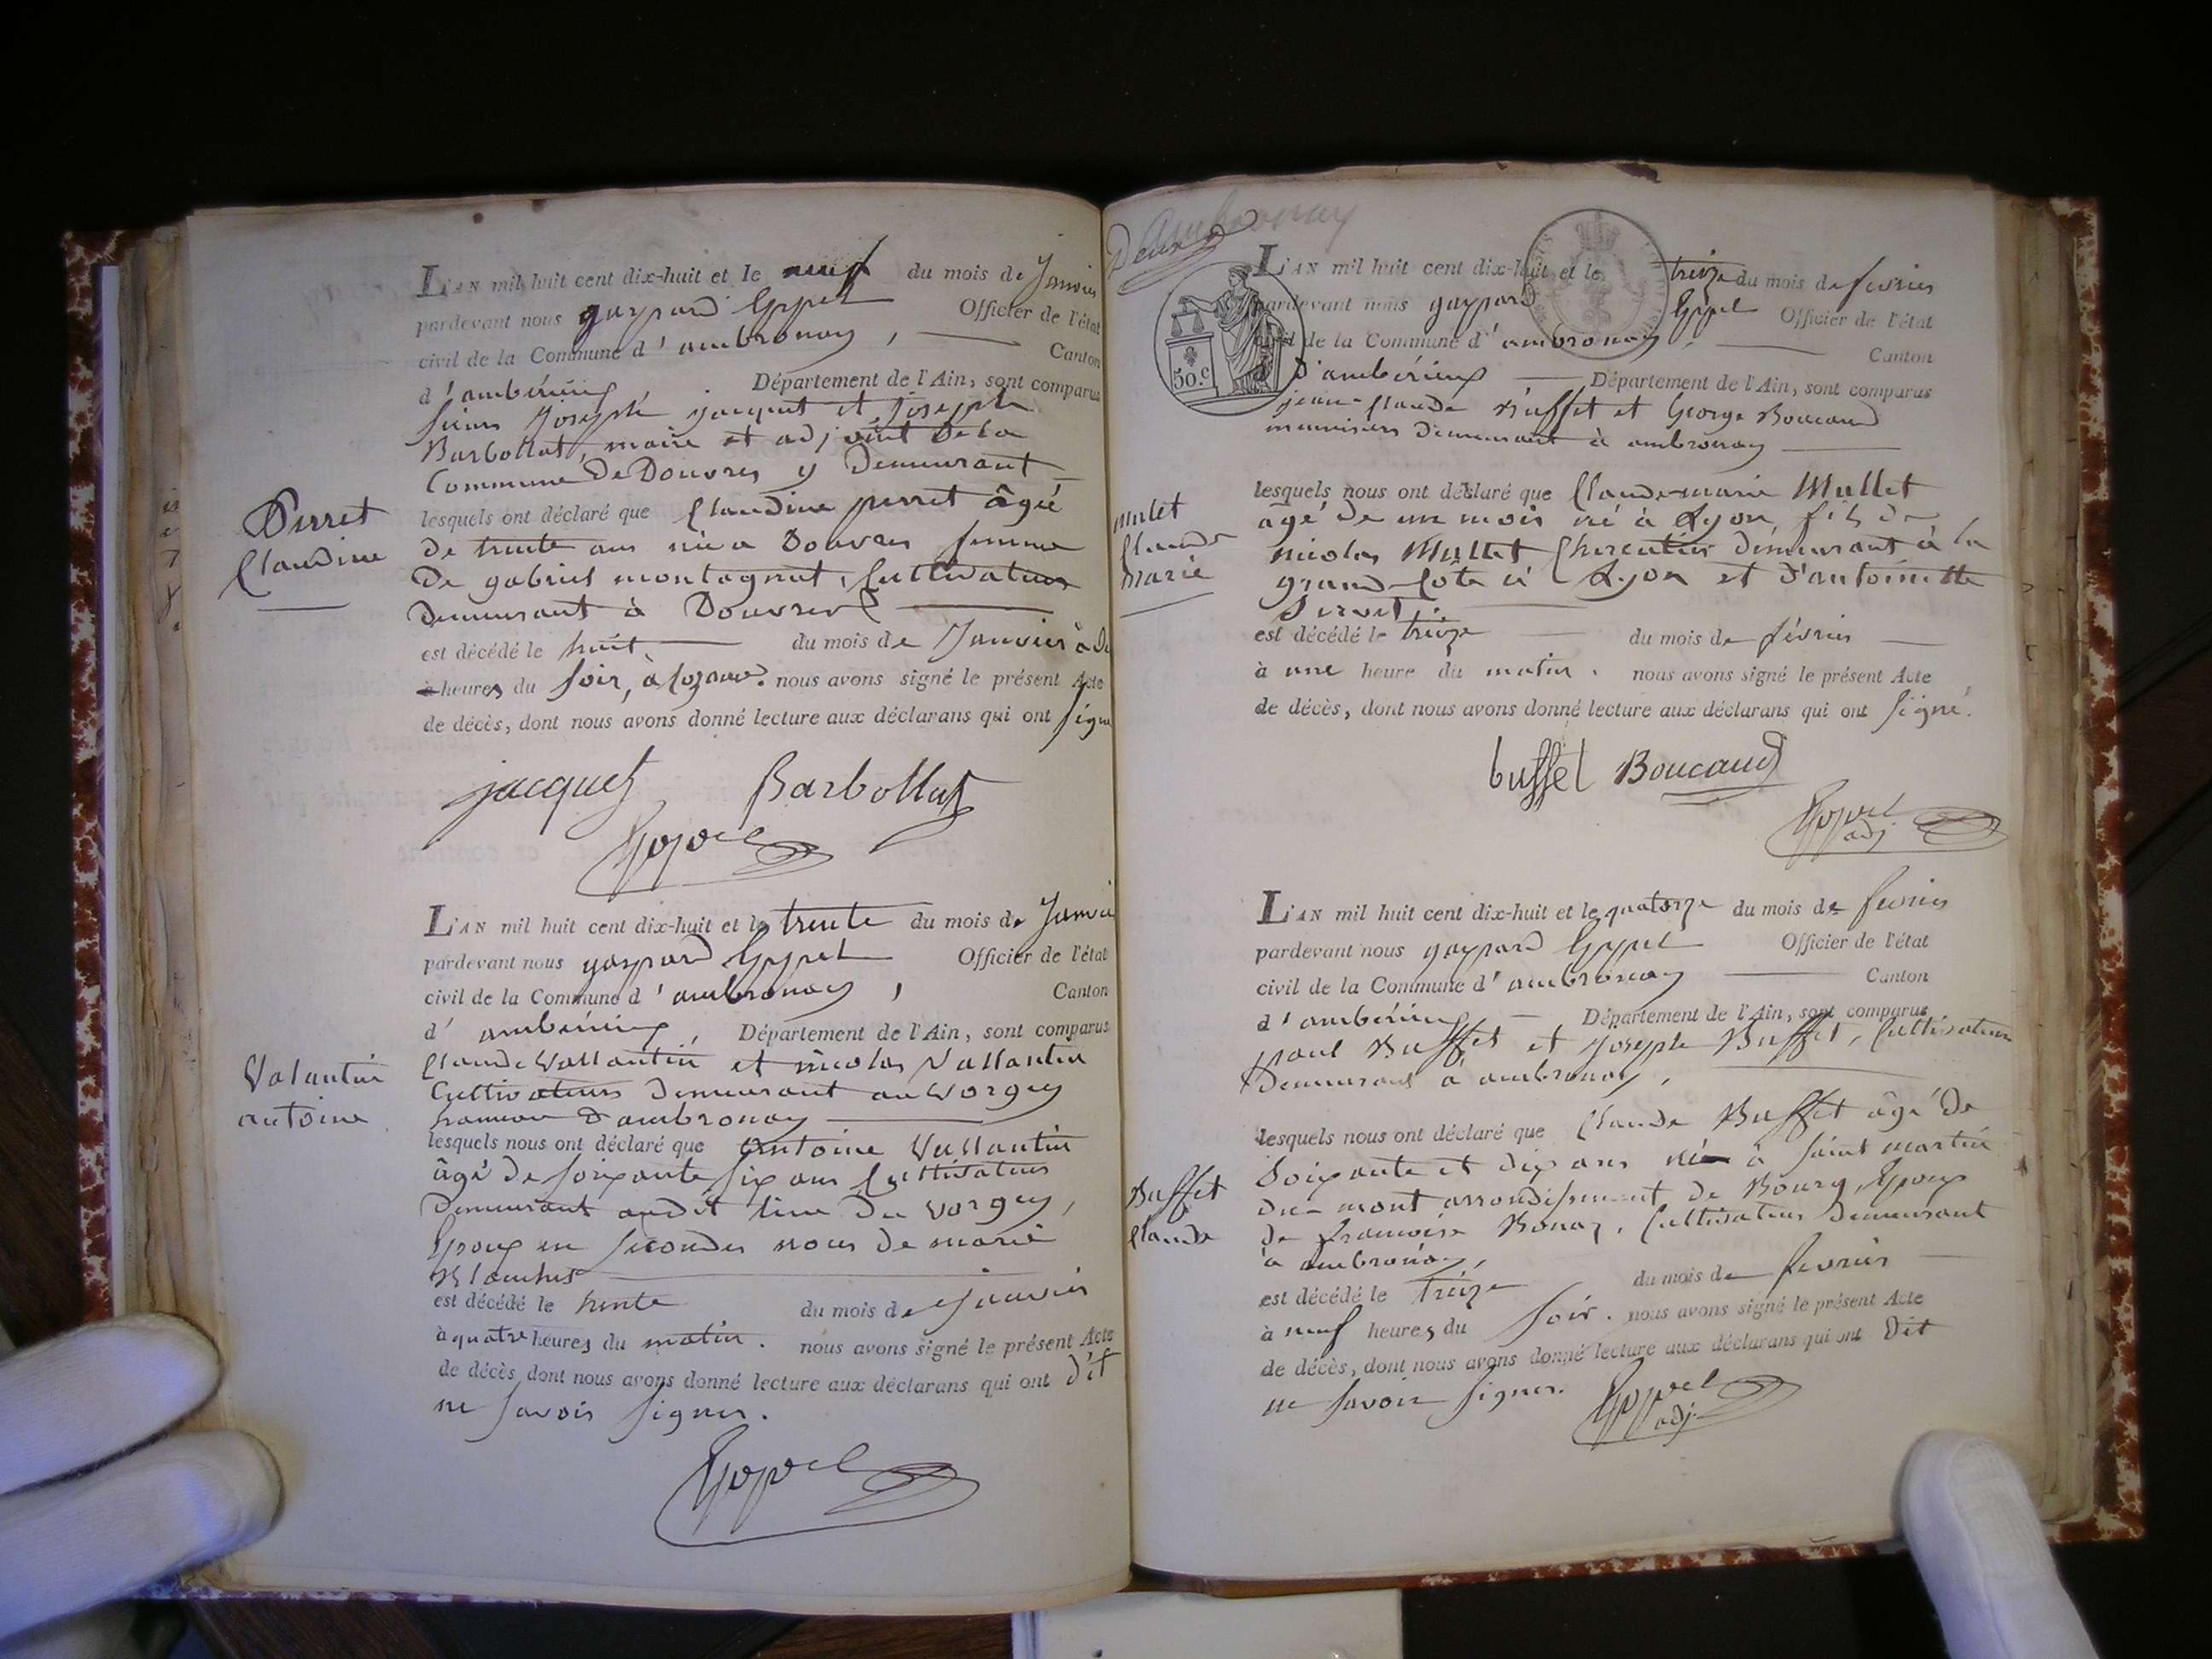 L'AN mil huit cent dix-huit et le neuf du mois de Janvier
pardevant nous gaspard Eyppel Officier de l'état
civil de la Commune d'ambronay, Canton
d'ambérieux, Département de l'Ain, sont comparus
sieurs Joseph jacquet et Joseph
Barbollat, maire et adjoint De la
Commune De Douvres y Demeurant
Perret
Claudine
lesquels ont déclaré que Claudine perret âgée
de trente ans née a Douvres femme
De gabriel montagnat, Cultivateur
Demeurant à Douvres
est décédé le huit du mois de Janvier à
heures du soir, à nous avons signé le présent Acte
de décès, dont nous avons donné lecture aux déclarans qui ont signé
jacquet Barbollat
Eyppel
L'AN mil huit cent dix-huit et le trente du mois de Janvi
pardevant nous gaspard Eyppel Officier de l'état
civil de la Commune d'ambronay, Canton
d' ambérieux, Département de l'Ain, sont comparus
Valantin
antoine
Claude Vallantin et nicolas Vallantin
Cultivateurs Demeurant au Vorgey
hameau D'ambronay
lesquels nous ont déclaré que Antoine Vallantin
âgé De soixante six ans Cultivateur
Demeurant audit lieu Du Vorgey,
Epoux en secondes noces De marie
Blanchet
est décédé le trente du mois de Janvier
à quatre heures du matin. nous avons signé le présent Acte
de décès dont nous avons donné lecture aux déclarans qui ont dit
ne savoir signer.
Eyppel
Deux
Ambronay
50.c
L'AN mil huit cent dix-huit et le treize du mois de fevrier
pardevant nous gaspard Eyppel Officier de l'état
civil de la Commune d'ambronay, Canton
d'ambérieux Département de l'Ain, sont comparus
jean-Claude Buffet et George Boucaud
menuisiers Demeurant à ambronay
mulet
Claude
Marie
lesquels nous ont déclaré que Claude-marie Mullet
âgé De un mois né à Lyon, fils De
nicolas Mullet Chercutier demeurant à la
grand-Cote à Lyon et D'antoinette
est décédé le treize du mois de février
à une heure du matin. nous avons signé le présent Acte
de décès, dont nous avons donné lecture aux déclarans qui ont signé.
buffet Boucaud
Eyppel
adj
L'AN mil huit cent dix-huit et le quatorze du mois de fevrier
pardevant nous gaspard Eyppel Officier de l'état
civil de la Commune d'ambronay Canton
d'ambérieux Département de l'Ain, sont comparus
paul Buffet et Joseph Buffet, Cultivateurs
Demeurant à ambronay,
Buffet
Claude
lesquels nous ont déclaré que Claude Buffet âgé De
Soixante et dix ans né à Saint martin
du-mont arrondissement de Bourg, Epoux
de francoise Bonaz, Cultivateur Demeurant
à ambronay,
est décédé le treize du mois de fevrier
à neuf heures du soir. nous avons signé le présent Acte
de décès, dont nous avons donné lecture aux déclarans qui ont Dit
ne savoir signer. Eyppel
adj.